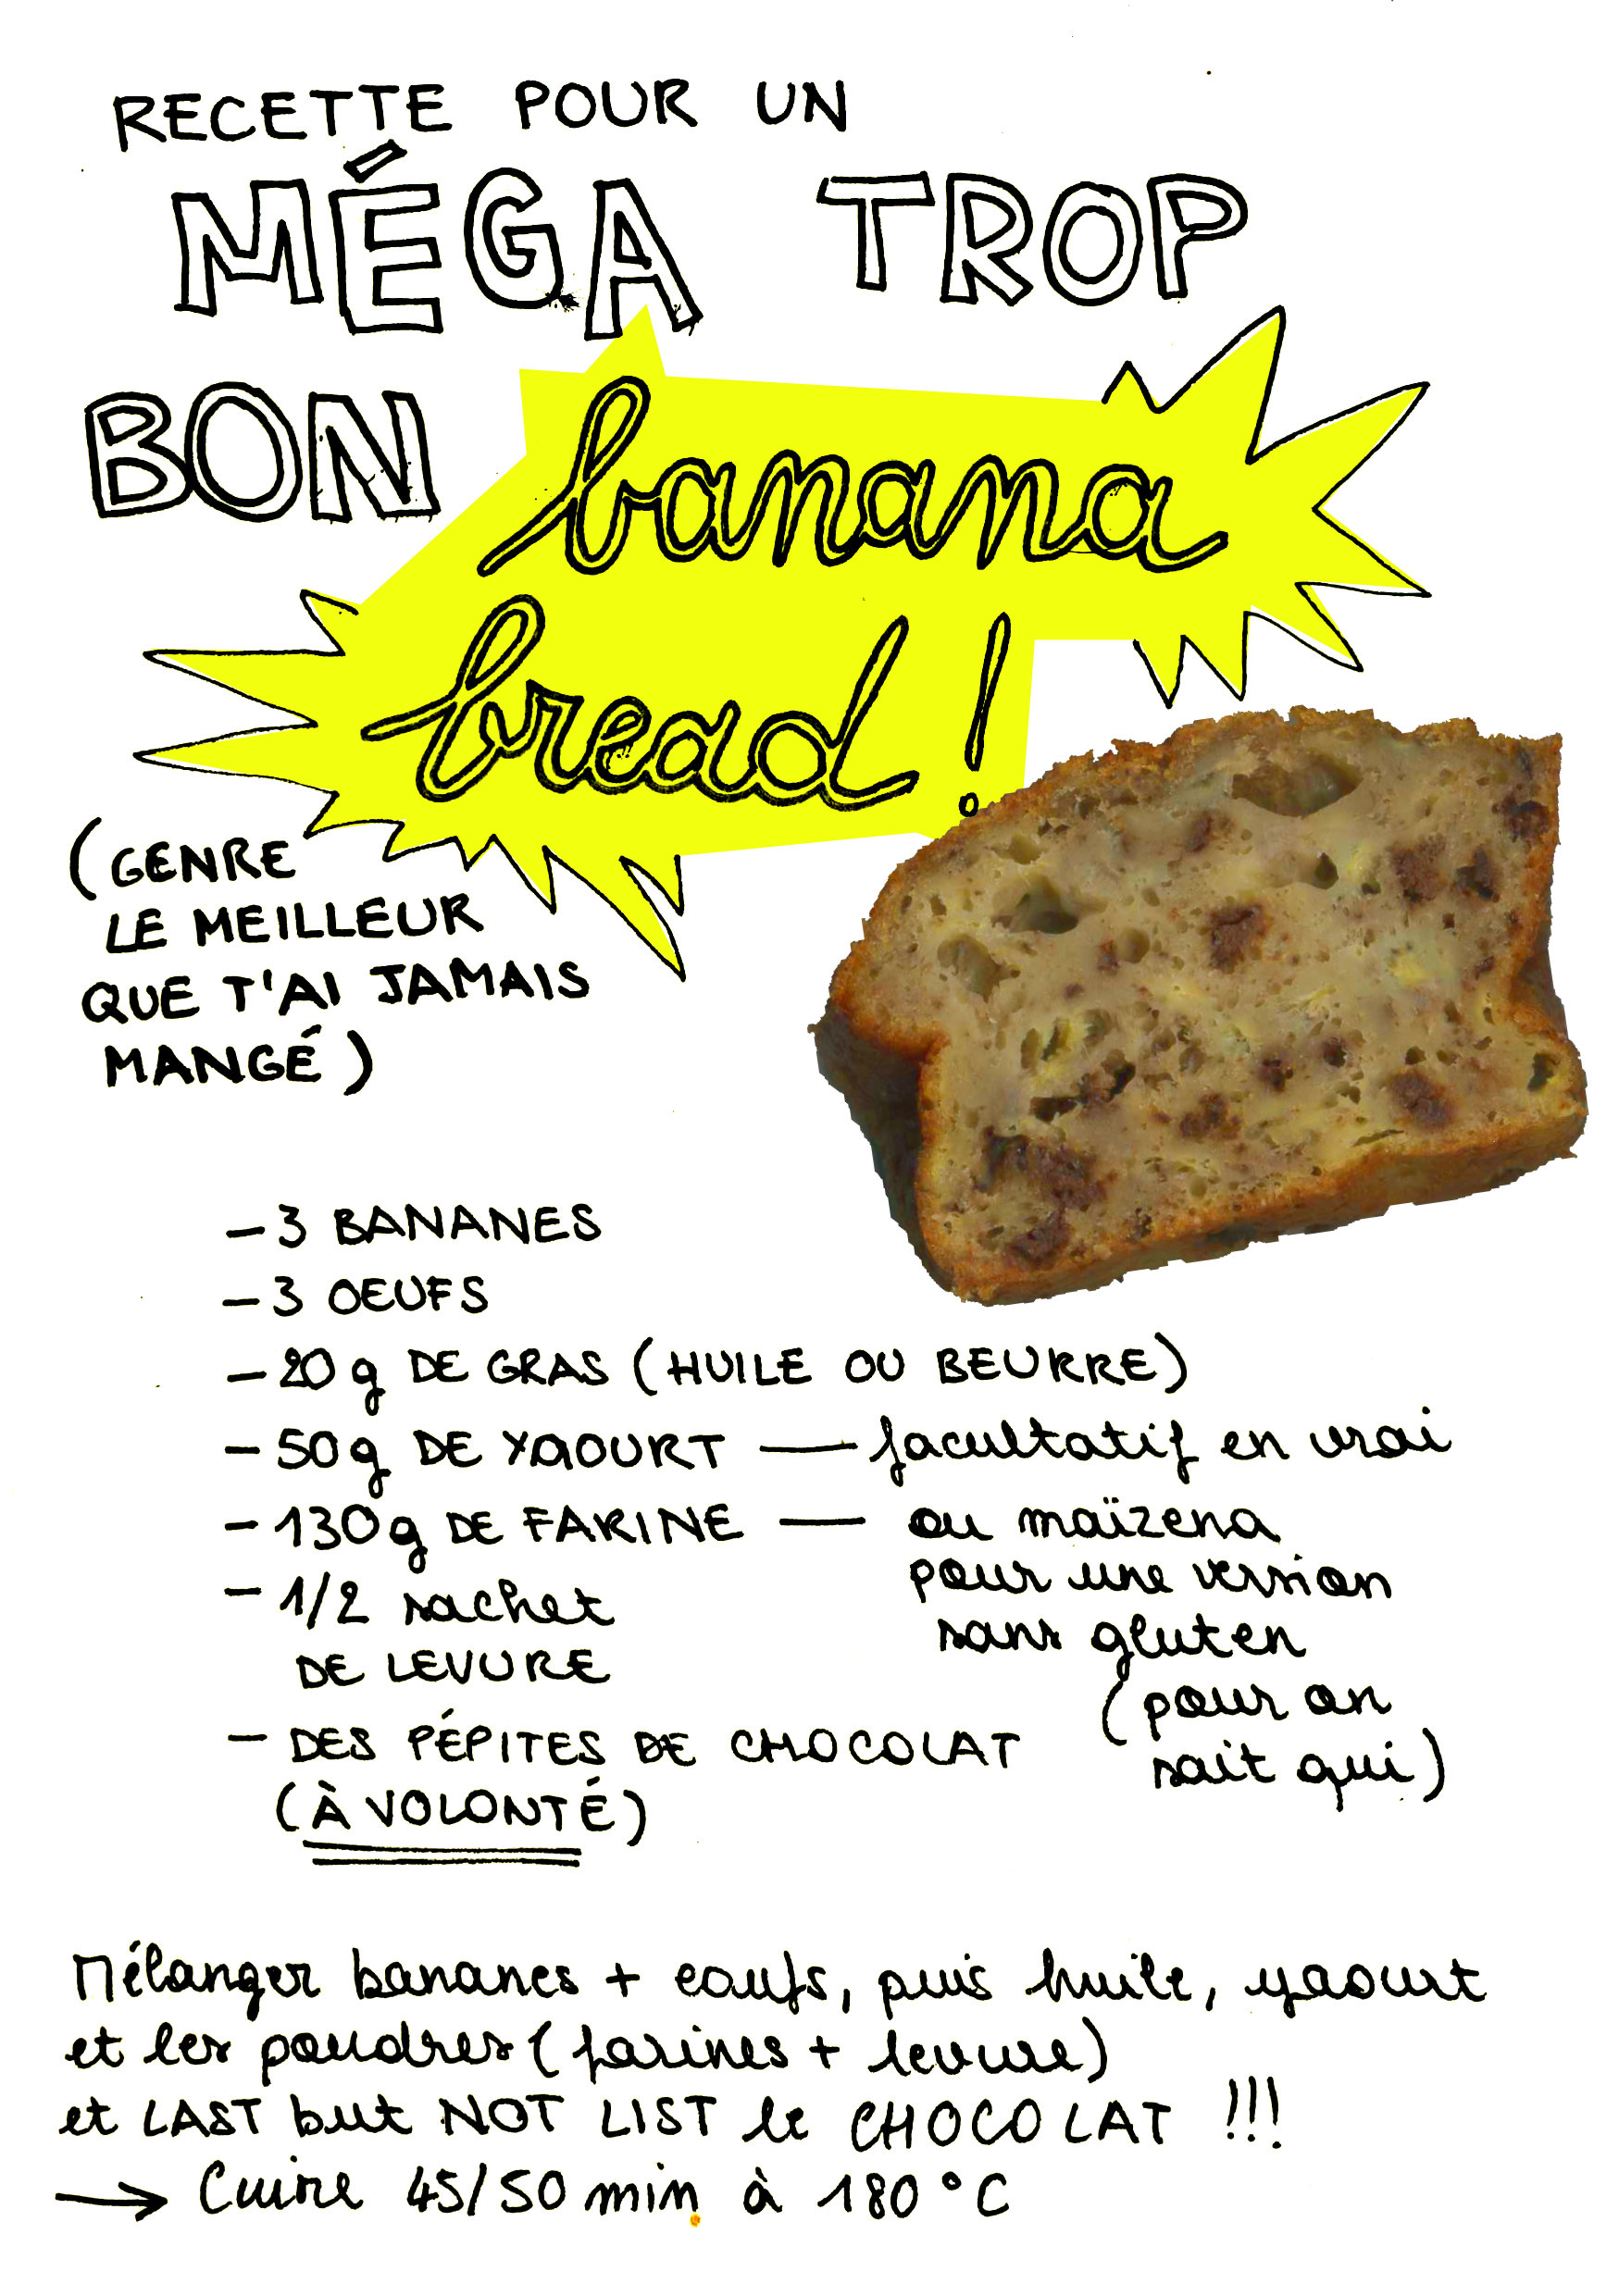 RECETTE POUR UN
MÉGA TROP
BON banana
bread !
(GENRE
LE MEILLEUR
QUE T'AI JAMAIS
MANGÉ)
- 3 BANANES
- 3 OEUFS
- 20 g DE GRAS (HUILE OU BEURRE)
- 50 g DE YAOURT — facultatif en vrai
- 130 g DE FARINE — ou maïzena
pour une version
sans gluten
(pour on
sait qui)
- 1/2 sachet
DE LEVURE
- DES PÉPITES DE CHOCOLAT
(À VOLONTÉ)
Mélanger bananes + eoufs, puis huile, yaourt
et les poudres (farines + levure)
et LAST but NOT LIST le CHOCOLAT !!!
→ Cuire 45/50 min à 180°C